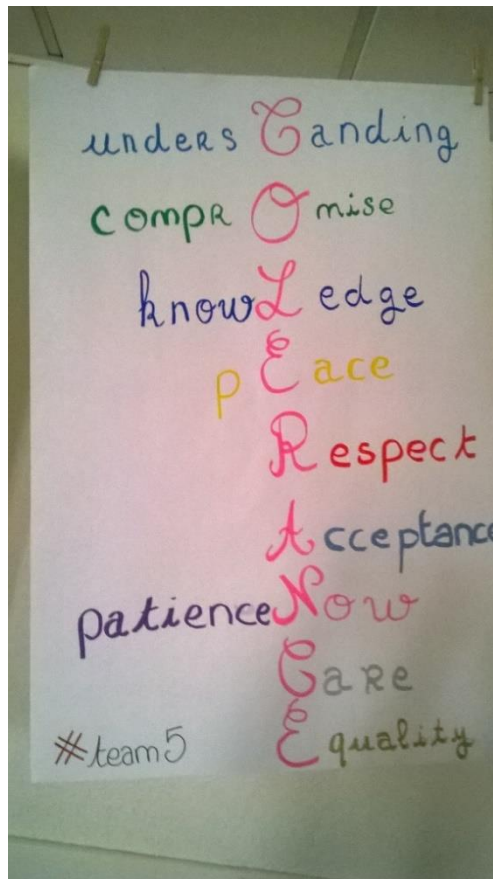 undersTanding
comprOmise
knowLedge
pEace
Respect
Acceptance
patience Now
Care
Equality
#team5